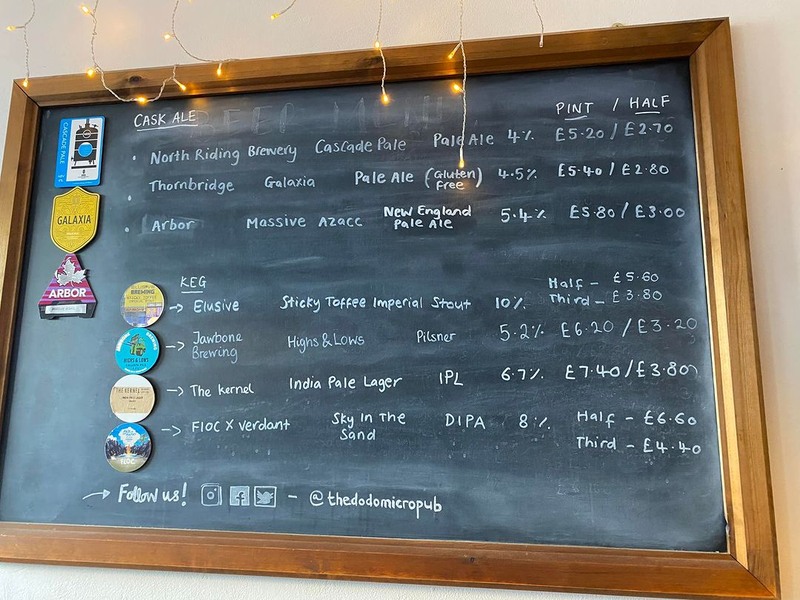 CASK ALE
PINT / HALF
CASCADE PALE
North Riding Brewery Cascade Pale Pale Ale 4% £5.20 / £2.70
Thornbridge Galaxia Pale Ale (Gluten Free) 4.5% £5.40 / £2.80
GALAXIA
Arbor Massive Azacc New England Pale Ale 5.4% £5.80 / £3.00
ARBOR
KEG
Elusive Sticky Toffee Imperial Stout 10% Half - £5.60
Third - £3.80
BREWING
Jawbone Brewing Highs & Lows Pilsner 5.2% £6.20 / £3.20
The Kernel India Pale Lager IPL 6.7% £7.40 / £3.80
THE KERNEL
FLOC X Verdant Sky In The Sand DIPA 8% Half - £6.60
Third - £4.40
FLOC
Follow us! - @thedodomicropub